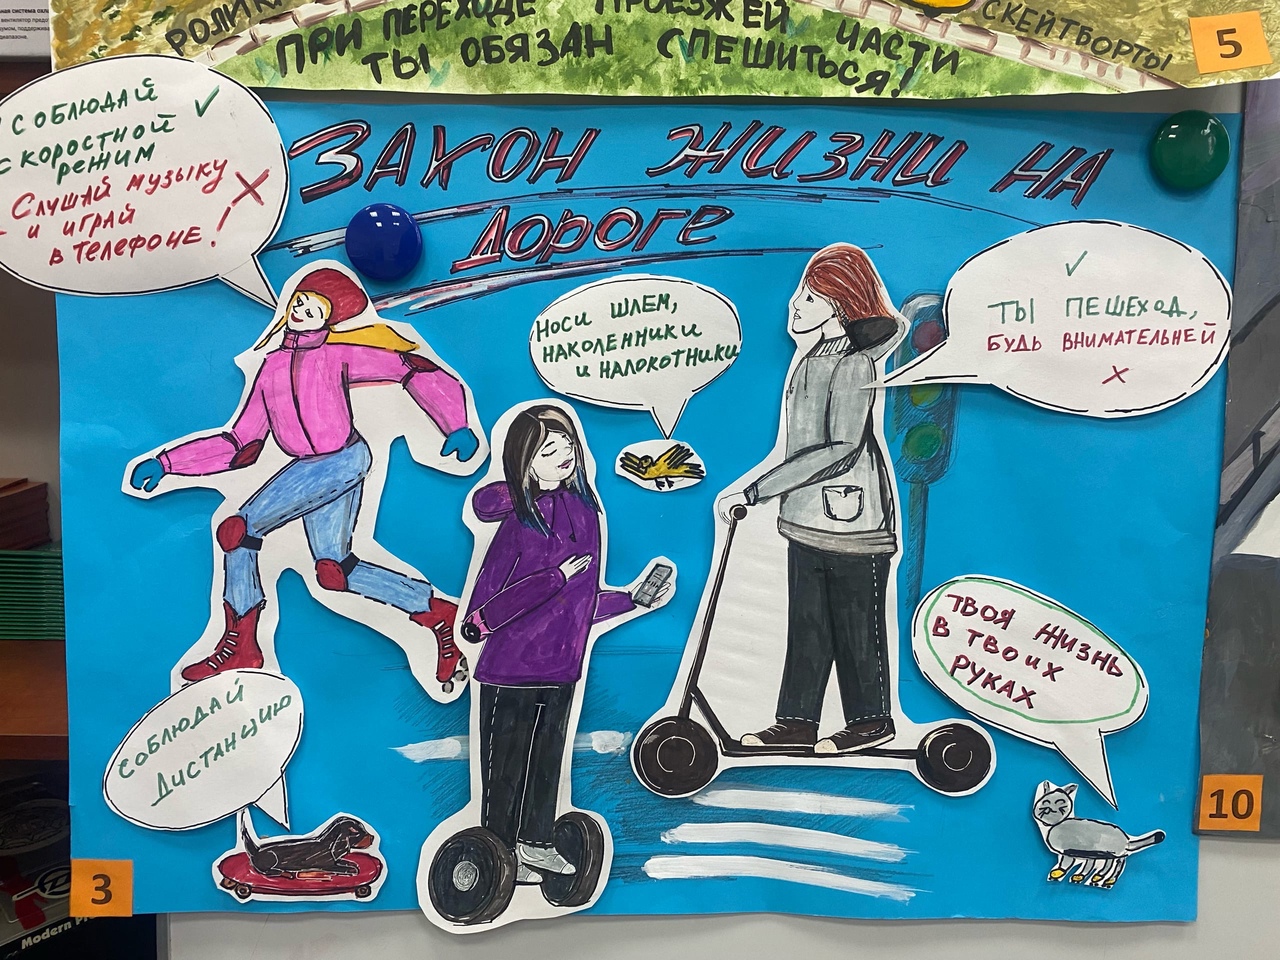 РОЛИК
ПРИ ПЕРЕХОДЕ ПРОЕЗЖЕЙ ЧАСТИ
СКЕЙТБОРТЫ
ТЫ ОБЯЗАН СПЕШИТЬСЯ!
5
СОБЛЮДАЙ
СКОРОСТНОЙ
РЕЖИМ
СЛУШАЙ МУЗЫКУ
И ИГРАЙ
В ТЕЛЕФОНЕ!
ЗАКОН ЖИЗНИ НА
ДОРОГЕ
НОСИ ШЛЕМ,
НАКОЛЕННИКИ
И НАЛОКОТНИКИ
ТЫ ПЕШЕХОД,
БУДЬ ВНИМАТЕЛЬНЕЙ
ТВОЯ ЖИЗНЬ
В ТВОИХ
РУКАХ
СОБЛЮДАЙ
ДИСТАНЦИЮ
3
10
Modern